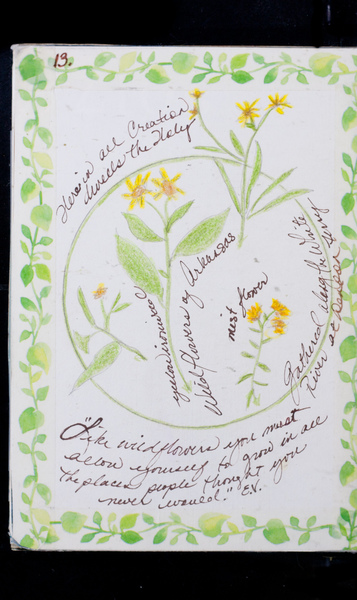 13.
Herein all Creation
dwells the Holy
yellow ironweed
Wildflowers of Arkansas
mist flower
Gathered along the White
River at Ferry
"Like wildflowers you must
allow yourself to grow in all
the places people thought you
never would." EV.